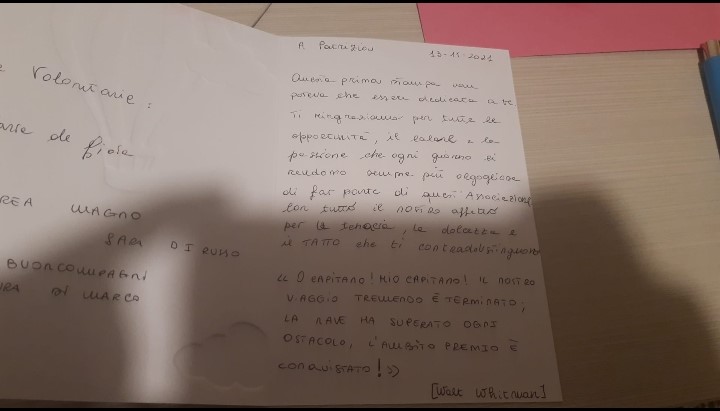 e Volontarie:
de Gioia
REA MAGNO
SARA DI RUSSO
BUONCOMPAGNI
RA DI MARCO
A Patrizia 13-11-2021
Questa prima stampa non
poteva che essere dedicata a te
Ti ringraziamo per tutte le
opportunità, il calore e la
passione, che ogni giorno ci
rendono sempre più orgogliose
di far parte di quest'Associazione
Con tutto il nostro affetto
per la tenacia, la dolcezza e
il TATTO che ti contraddistinguono
« O CAPITANO! MIO CAPITANO! IL NOSTRO
VIAGGIO TREMENDO È TERMINATO;
LA NAVE HA SUPERATO OGNI
OSTACOLO, L'AMBITO PREMIO È
CONQUISTATO! »
[Walt Whitman]